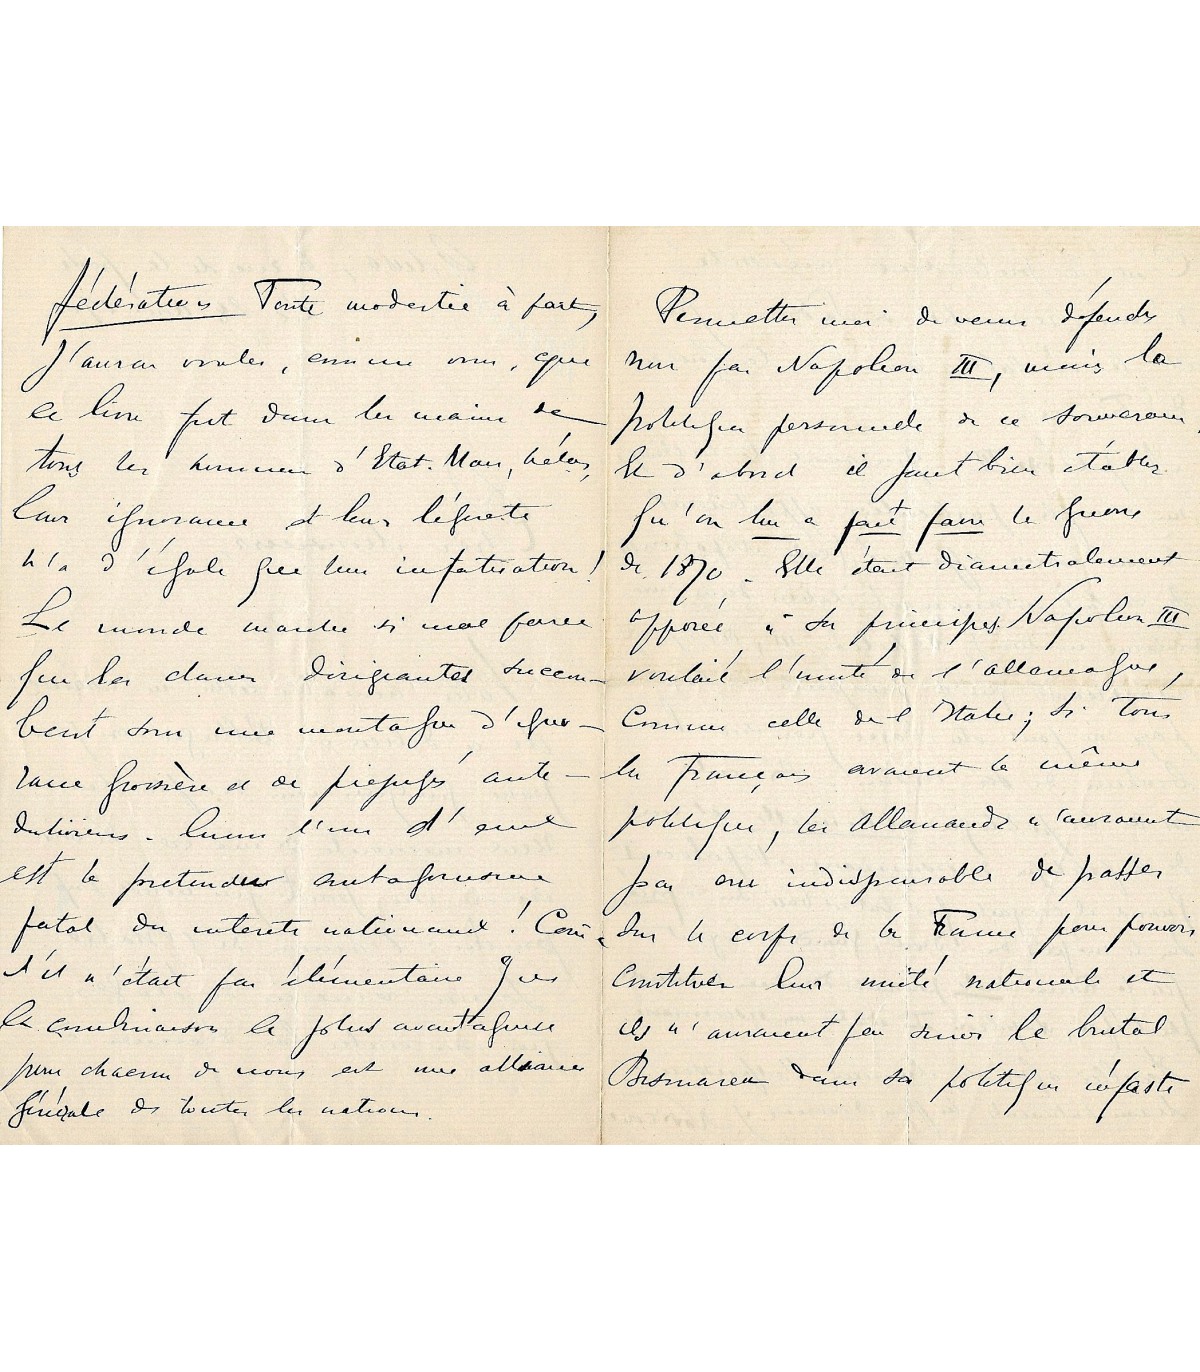 fédérations Toute modestie à part,
J'aurais voulu, comme vous, que
ce livre fut dans les mains de
tous les hommes d'Etat. Mais, hélas,
leur ignorance et leur légèreté
n'a d'égale que leur infatuation!
Le monde marche si mal parce
que les classes dirigeantes succom-
bent sous une montagne d'igno-
rance grossière et de préjugés anté-
diluviens. Comme l'un d'eux
est le prétendu antagonisme
fatal des intérêts nationaux! Com-
s'il n'était pas élémentaire que
la combinaison la plus avantageuse
pour chacun de nous est une alliance
générale de toutes les nations.
Permettez moi de venir défendre
non pas Napoléon III, mais la
politique personnelle de ce souverain.
Et d'abord il faut bien établir
qu'on lui a fait faire la guerre
de 1870. Elle était diamétralement
opposée à ses principes. Napoléon III
voulait l'unité de l'Allemagne,
comme celle de l'Italie; si tous
les Français avaient la même
politique, les Allemands n'auraient
pas cru indispensable de passer
sur le corps de la France pour pouvoir
constituer leur unité nationale et
ils n'auraient pas suivi le brutal
Bismarck dans sa politique néfaste